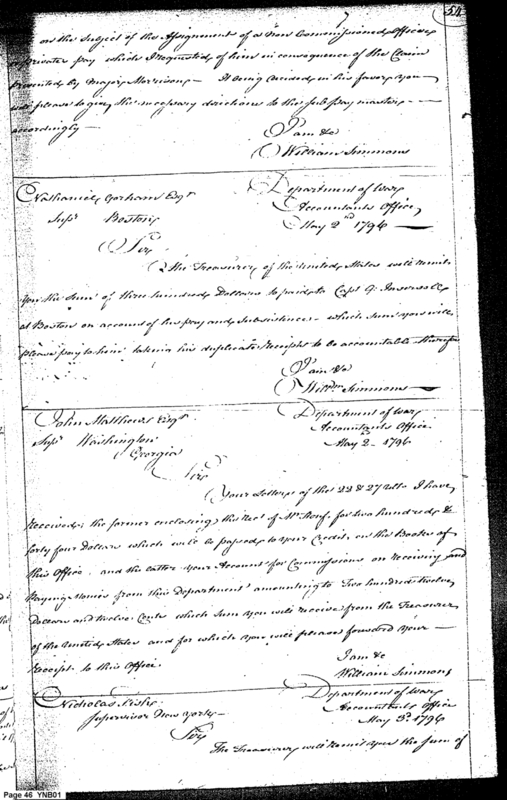 54
on the subject of the Assignment of a Non Commissioned Officer
or Privates pay which I requested of him in consequence of the Claim
presented by Major Morrison — It being decided in his favor you
will please to give the necessary directions to the sub paymaster —
accordingly —
I am &c
William Simmons
Nathaniel Gorham Esqr
Supr Boston
Department of War
Accountants Office
May 2nd 1796
Sir
The Treasurer of the United States will remit
you the sum of three hundred Dollars to paid to Capt G. Ingersoll
at Boston on account of his pay and subsistence - which sum you will
please pay to him taking his duplicate Receipts to be accountable therefor
I am &c
Willm Simmons
John Matthews Esqr
Supr Washington
Georgia
Department of War
Accountants Office
May 2 1796
Sir
Your Letters of the 22 & 27 Ulto I have
Received, the former enclosing the Rect of Mr for two hundred &
forty four Dollars which will be passed to your Credit, on the Books of
this Office, and the latter your Account for Commissions on receiving and
Paying Monies from this Department amounting to Two hundred twelve
Dollars and twelve Cents which sum you will receive from the Treasurer
of the United States and for which you will please forward your —
Receipt to this Office.
I am &c
William Simmons
Nicholas Fish
Supervisor New York —
Department of War
Accountants Office
May 3d 1796
Sir
The Treasurer will remit you the sum of
Page 46 YNB01